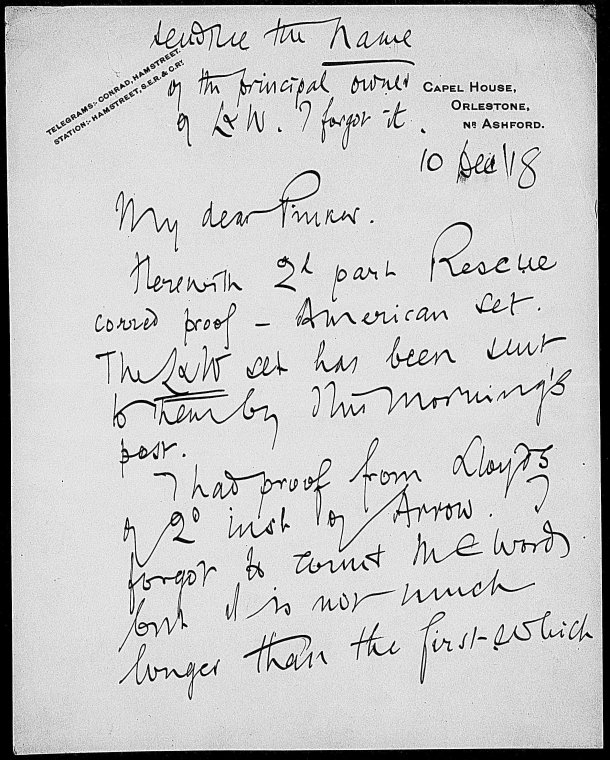 Send me the name
of the principal owner
of L&W. I forgot it.
TELEGRAMS:- CONRAD, HAMSTREET.
STATION:- HAMSTREET, S.E.R. & C.RY
CAPEL HOUSE,
ORLESTONE,
NR ASHFORD.
10 Dec '18
My dear Pinker.
Herewith 2d part Rescue
corred proof – American set.
The L&W set has been sent
to them by this morning's
post.
I had proof from Lloyds
of 2d inst of Arrow. I
forgot to count the words
but it is not much
longer than the first - which